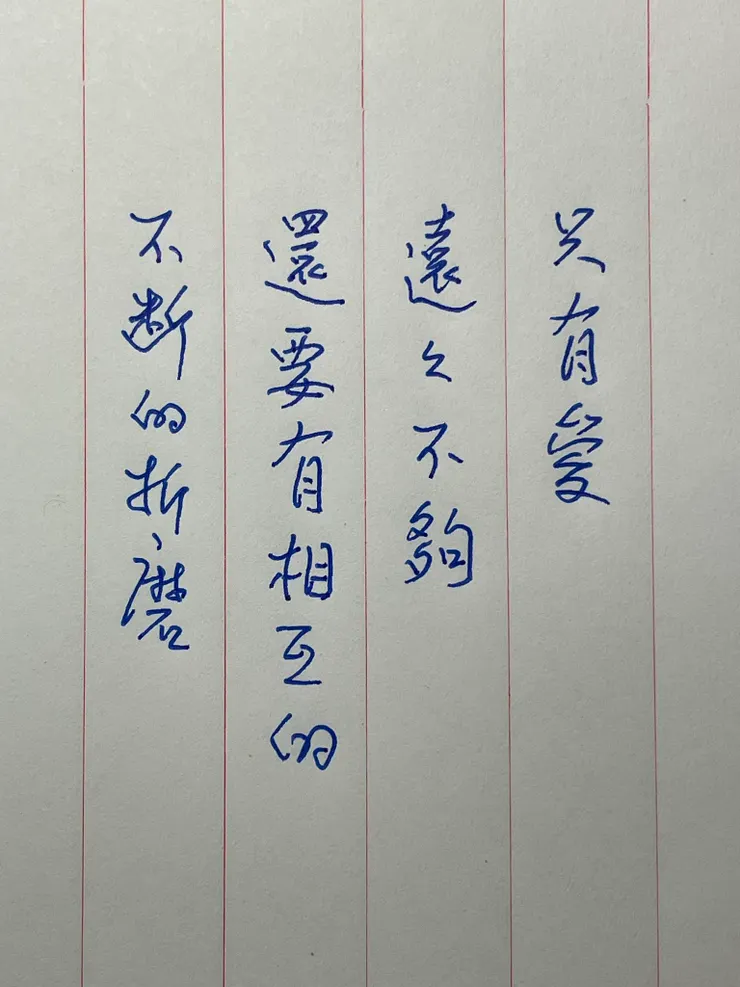 只有愛
遠々不夠
還要有相互的
不断的折磨